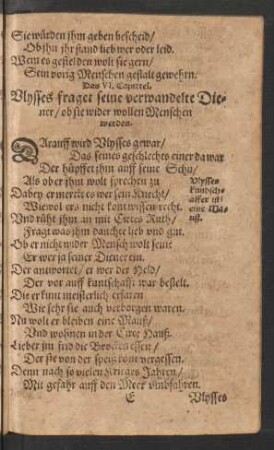 Sie würden jhm geben bescheid/
Ob jhn jhr stand lieb wer oder leid.
Wem es gefiel den wolt sie gern/
Sein vorig Menschen gestalt gewehrn.
Das VI. Capittel.
Vlysses fraget seine verwandelte Die-
ner/ ob sie wider wollen Menschen
werden.
DArauff wird Vlysses gewar/
Das seines geschlechts einer da war
Der hüpffet jhm auff seine Schu/
Als ober jhm wolt sprechen zu
Dabey er merckt es wer sein Knecht/
Wiewol ers nicht kont wissen recht.
Vnd rührt jhn an mit Circes Ruth/
Fragt was jhn dauchte lieb vnd gut.
Ob er nicht wider Mensch wolt sein
Er wer ja seiner Diener ein.
Der antwortet/ er wer der Held/
Der vor auff kuntschafft war bestelt.
Die er kunt meisterlich erfaren
Wie sehr sie auch verborgen waren.
Nu wolt er bleiben eine Mauß/
Vnd wohnen in der Circe Hauß.
Lieber jm sind die Brocken essen/
Der sie von der speiß kont vergessen.
Denn nach so vielen Jahren/
Mit gefahr auff dem Meer vmbfahren.
Vlysses
kundsch-
affer ist
eine Ma-
uß.
E
Vlysses